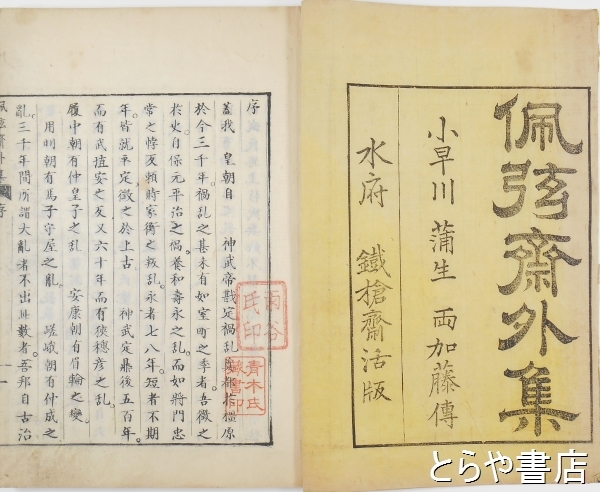 佩弦齋外集
小早川 蒲生 両加藤傳
水府 鐵槍齋活版
序
蓋我 皇朝自 神武帝戡定禍乱奠都於橿原
於今三千年。禍乱之甚未有如室町之季者。吾徴之
於史。自保元平治之禍。養和壽永之乱。而如將門忠
常之悖。及頼時家衡之叛乱。永者七八年。短者不期
年。皆就平定。徴之於上古。 神武定鼎後五百年。
而有武埴安之反。又六十年而有狹穗彦之乱。
履中朝有仲皇子之乱。 安康朝有眉輪之變。
用明朝有馬子守屋之亂。 嵯峨朝有仲成之
亂。三千年間所謂大亂者不出此數者。吾邦自古治
佩弦齋外集 序
一
青木氏
とらや書店